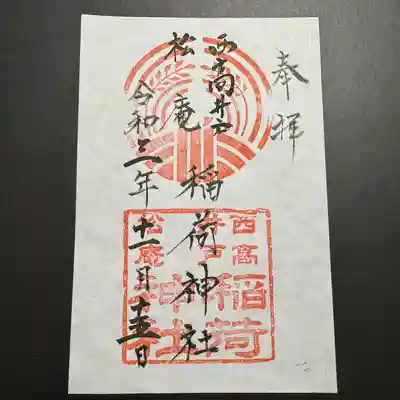 奉拝
西高井戸
松庵稲荷神社
令和三年十一月十五日
西高井戸
松庵
稲荷
神社